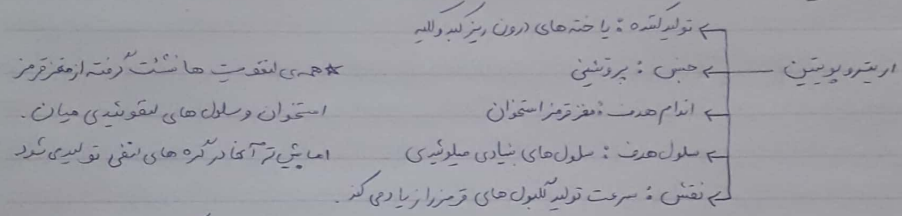 تولید کننده : یاخته های درون ریز کبد و کلیه
اریتروپویتین جنس : پروتئینی
اندام هدف : مغز قرمز استخوان
سلول هدف : سلول های بنیادی میلوئیدی
نقش : سرعت تولید گلبول های قرمز را زیاد می کند.
* همه ی لنفوسیت ها نشئت گرفته از مغز قرمز
استخوان و سلول های لنفوئیدی میان.
اما بیش تر آنها در گره های لنفی تولید می شود